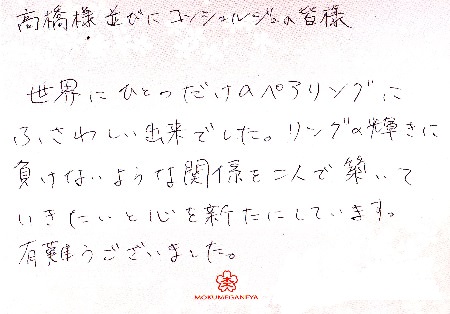 高橋様 並びに コンシェルジュの皆様
世界にひとつだけのペアリングに
ふさわしい出来でした。リングの輝きに
負けないような関係を二人で築いて
いきたいと心を新たにしています。
有難うございました。
MOKUMEGANEYA